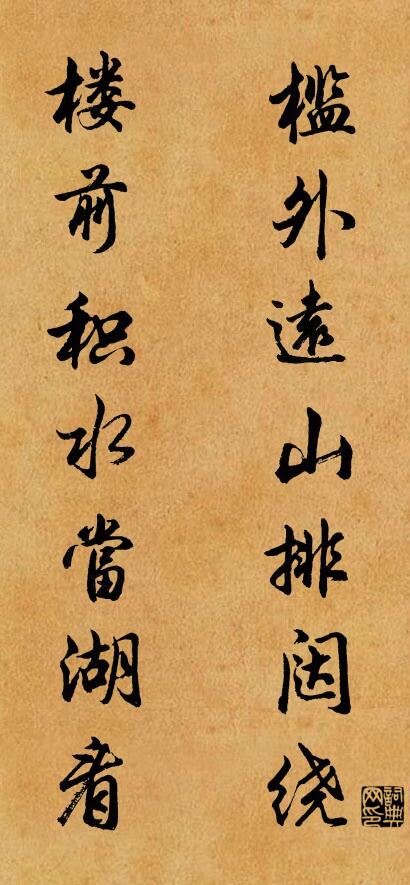 槛外遠山排闼绕
楼前积水當湖看
詞典网印